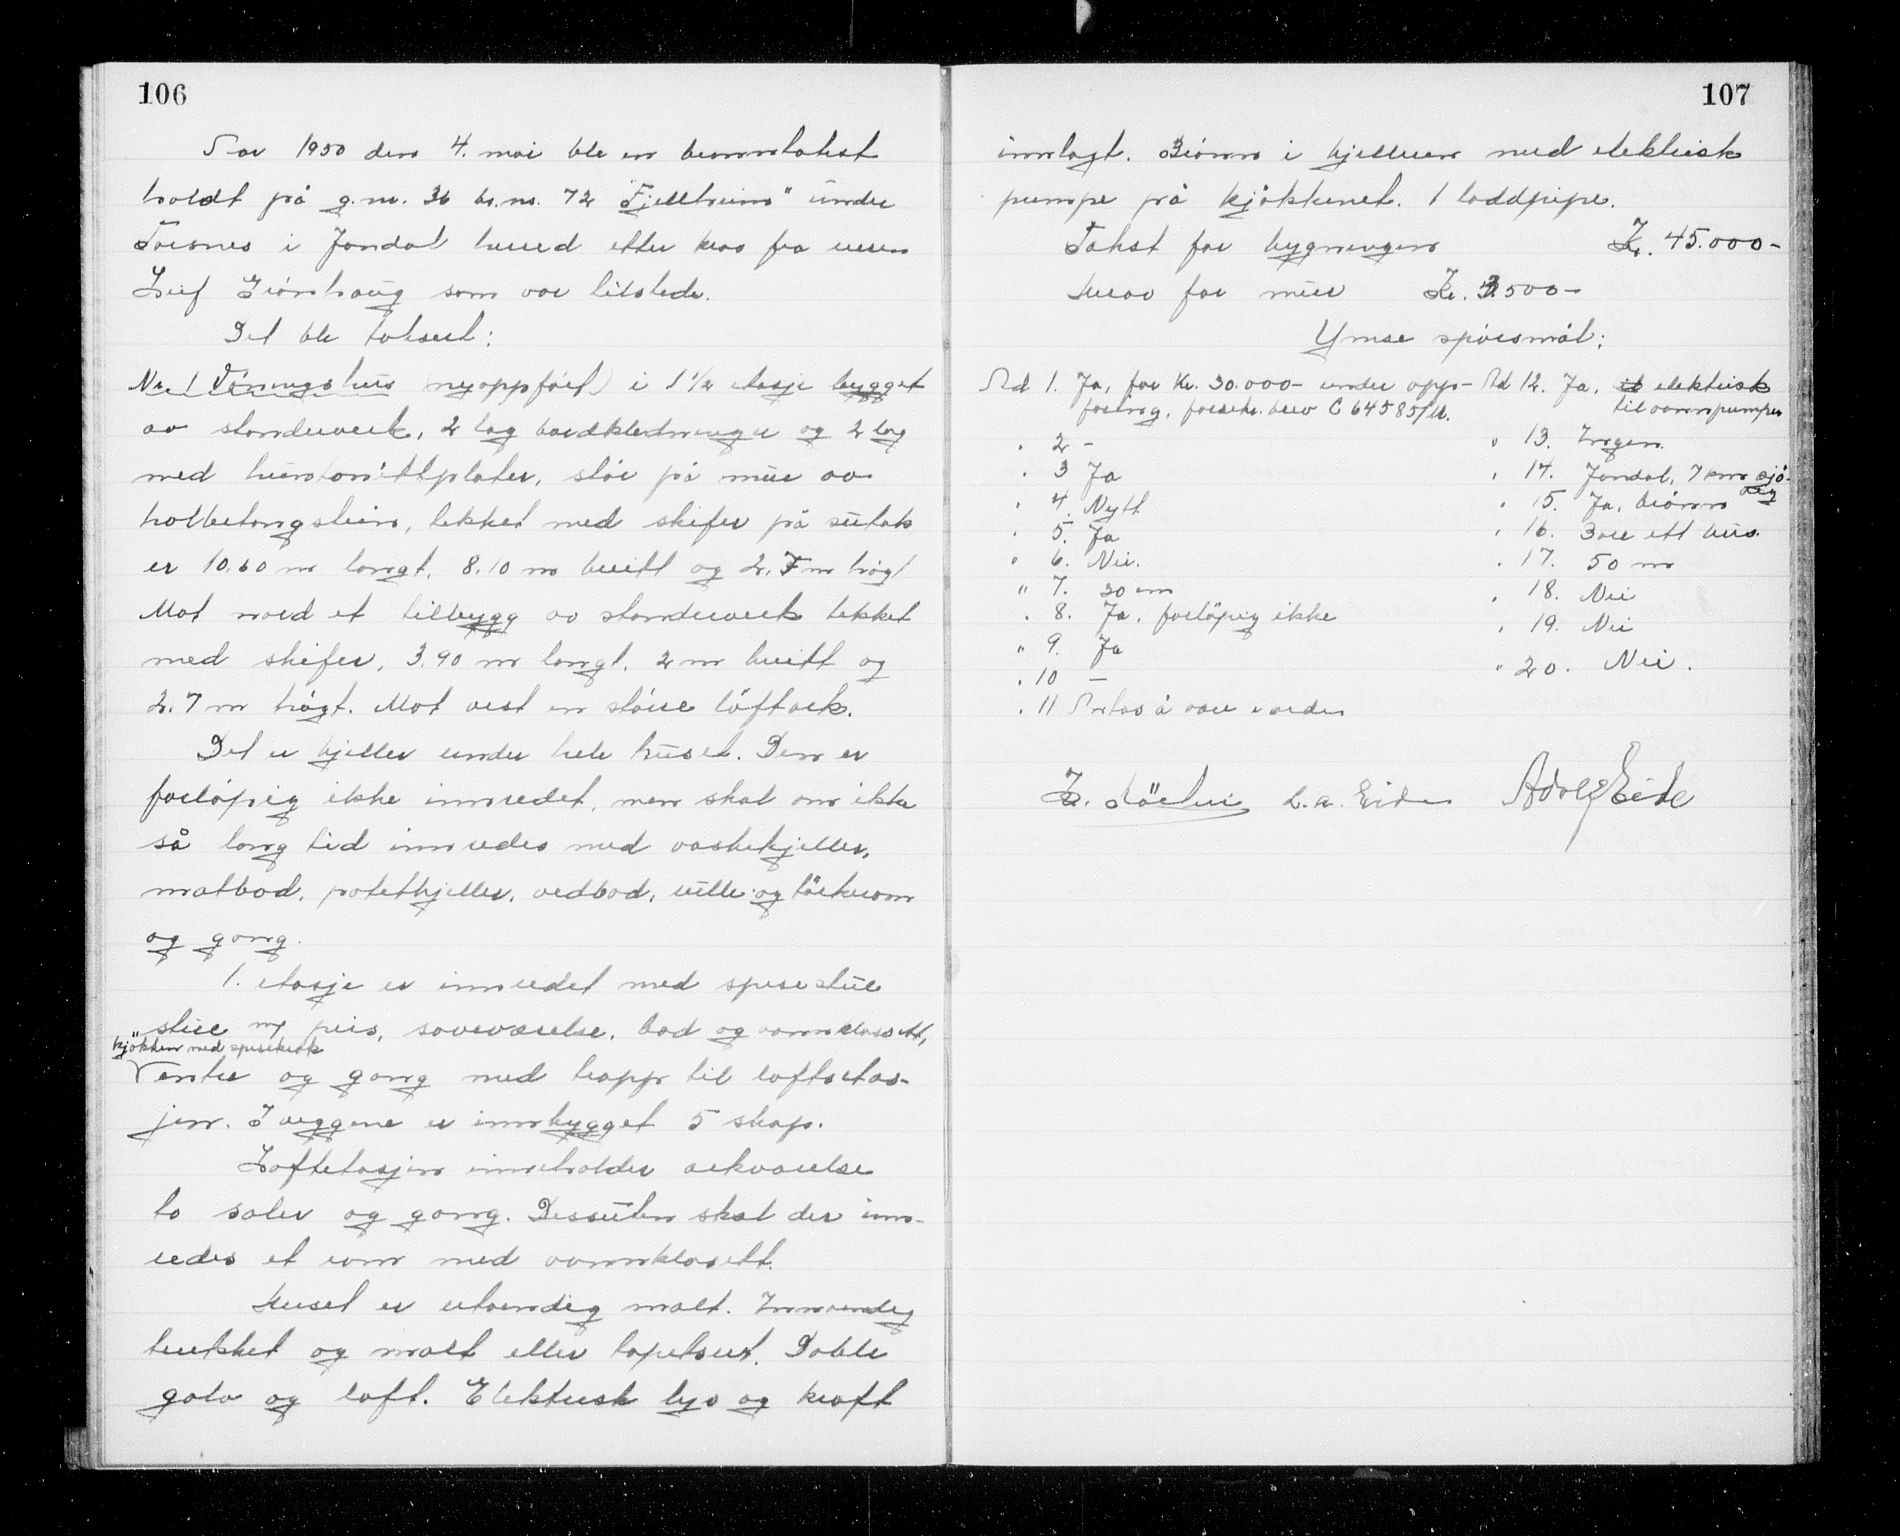 106
Aar 1950 den 4. mai ble en branntakst
holdt på g.nr. 36 br.nr. 72 "Fjellheim" under
Torsnes i Jondal herred etter krav fra eieren
Leif Grönhaug som var tilstede.
Det ble taksert:
Nr. 1 Våningshus (nyoppfört) i 1 1/2 etasje bygget
av standerverk, 2 lag bordkledninger og 2 lag
med huntonittplater, står på mur av
holbetongstein, tekket med skifer på sutak
er 10.60 m langt, 8.10 m breitt og 2.7 m högt
Mot nord et tilbygg av standerverk tekket
med skifer, 3.90 m langt, 2 m breitt og
2.7 m högt. Mot vest en större löftark.
Det er kjeller under hele huset. Den er
forlöpig ikke innredet, men skal om ikke
så lang tid innredes med vaskekjeller,
matbod, potetkjeller, vedbod, rulle og törkerom
og gang.
1. etasje er innredet med spisestue
stue m/ peis, soveværelse, bad og vannklosett,
kjökken med spisekrok
Ventre og gang med trapp til loftsetas-
jen. I veggene er innbygget 5 skap.
Loftetasjen inneholder arkværelse
to saler og gang. Dessuten skal der inn-
redes et rom med vannklosett.
Huset er utvendig malt. Innvendig
trukket og malt eller tapetsert. Doble
golv og loft. Elektrisk lys og kraft
107
innlagt. Brönn i kjelleren med elektrisk
pumpe på kjökkenet. 1 loddpipe.
Takst for bygningen Kr. 45.000-
Herav for mur Kr. 3.500-
Ymse spörsmål:
Ad 1. Ja, for Kr. 30.000- under opp-
föring, forsikr. brev C 64585/11.
" 2 -
" 3 Ja
" 4. Nytt
" 5. Ja
" 6. Nei.
" 7. 30 cm
" 8. Ja, forlöpig ikke
" 9. Ja
" 10 -
" 11 Antas å være i orden
Ad 12. Ja, elektrisk
til vannpumpen
" 13. Ingen.
" 14. Jondal, 7 km sjö-
veg
" 15. Ja, brönn
" 16. Bare ett hus.
" 17. 50 m
" 18. Nei
" 19. Nei
" 20. Nei.
L. a. Eide Adolf Eide